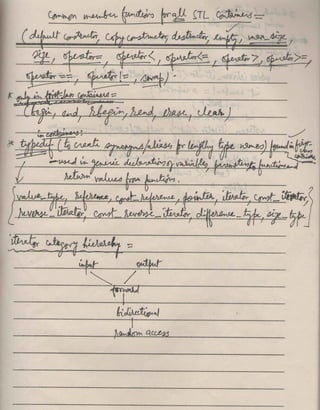 Common member functions for all STL Containers =
(default constructor, copy constructor, destructor, empty, max_size,
size, operator=, operator<, operator<=, operator>, operator>=,
operator==, operator!=, swap)
* only in first class containers =
(begin, end, rbegin, rend, erase, clear)
in containers:
* typedef (to create synonyms/aliases for lengthy type names) found in first-
class containers
used in generic declarations of variables, parameters to functions and
return values from functions.
[value_type, reference, const_reference, pointer, iterator, const_iterator,
reverse_iterator, const_reverse_iterator, difference_type, size_type]
iterator category hierarchy =
input output
forward
bidirectional
random access